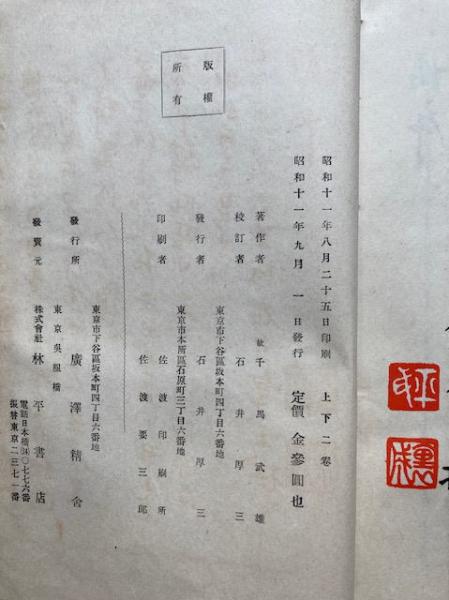 版權
所有
昭和十一年八月二十五日印刷 上下二卷
昭和十一年九月一日發行 定價金參圓也
著作者 故千馬武雄
校訂者 石井厚三
東京市下谷區坂本町四丁目六番地
發行者 石井厚三
東京市本所區石原町三丁目六番地
印刷者 佐波印刷所
佐波要三郎
東京市下谷區坂本町四丁目六番地
發行所 廣澤精舍
東京吳服橋
發賣元 株式會社林平書店
電話日本橋(24)〇七七六番
振替東京二三七一番